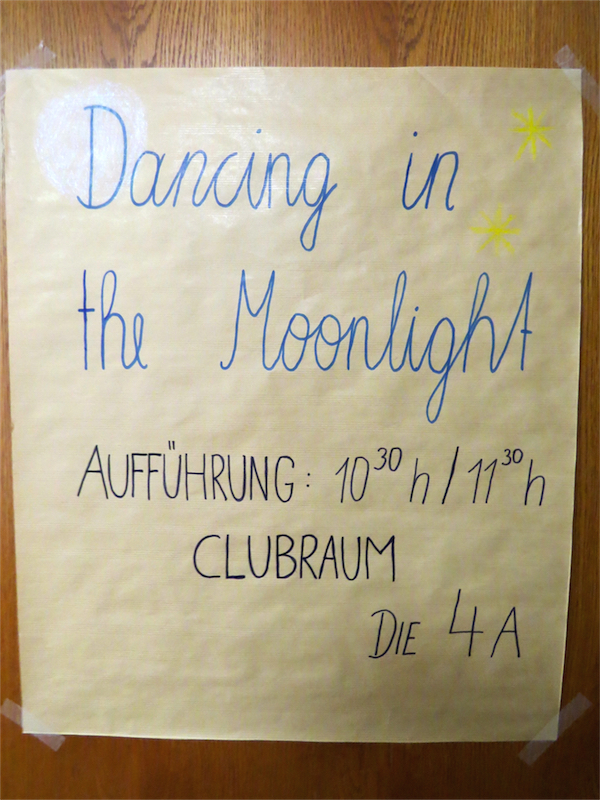 Dancing in
the Moonlight
AUFFÜHRUNG: 10³⁰ h / 11³⁰ h
CLUBRAUM
DIE 4A